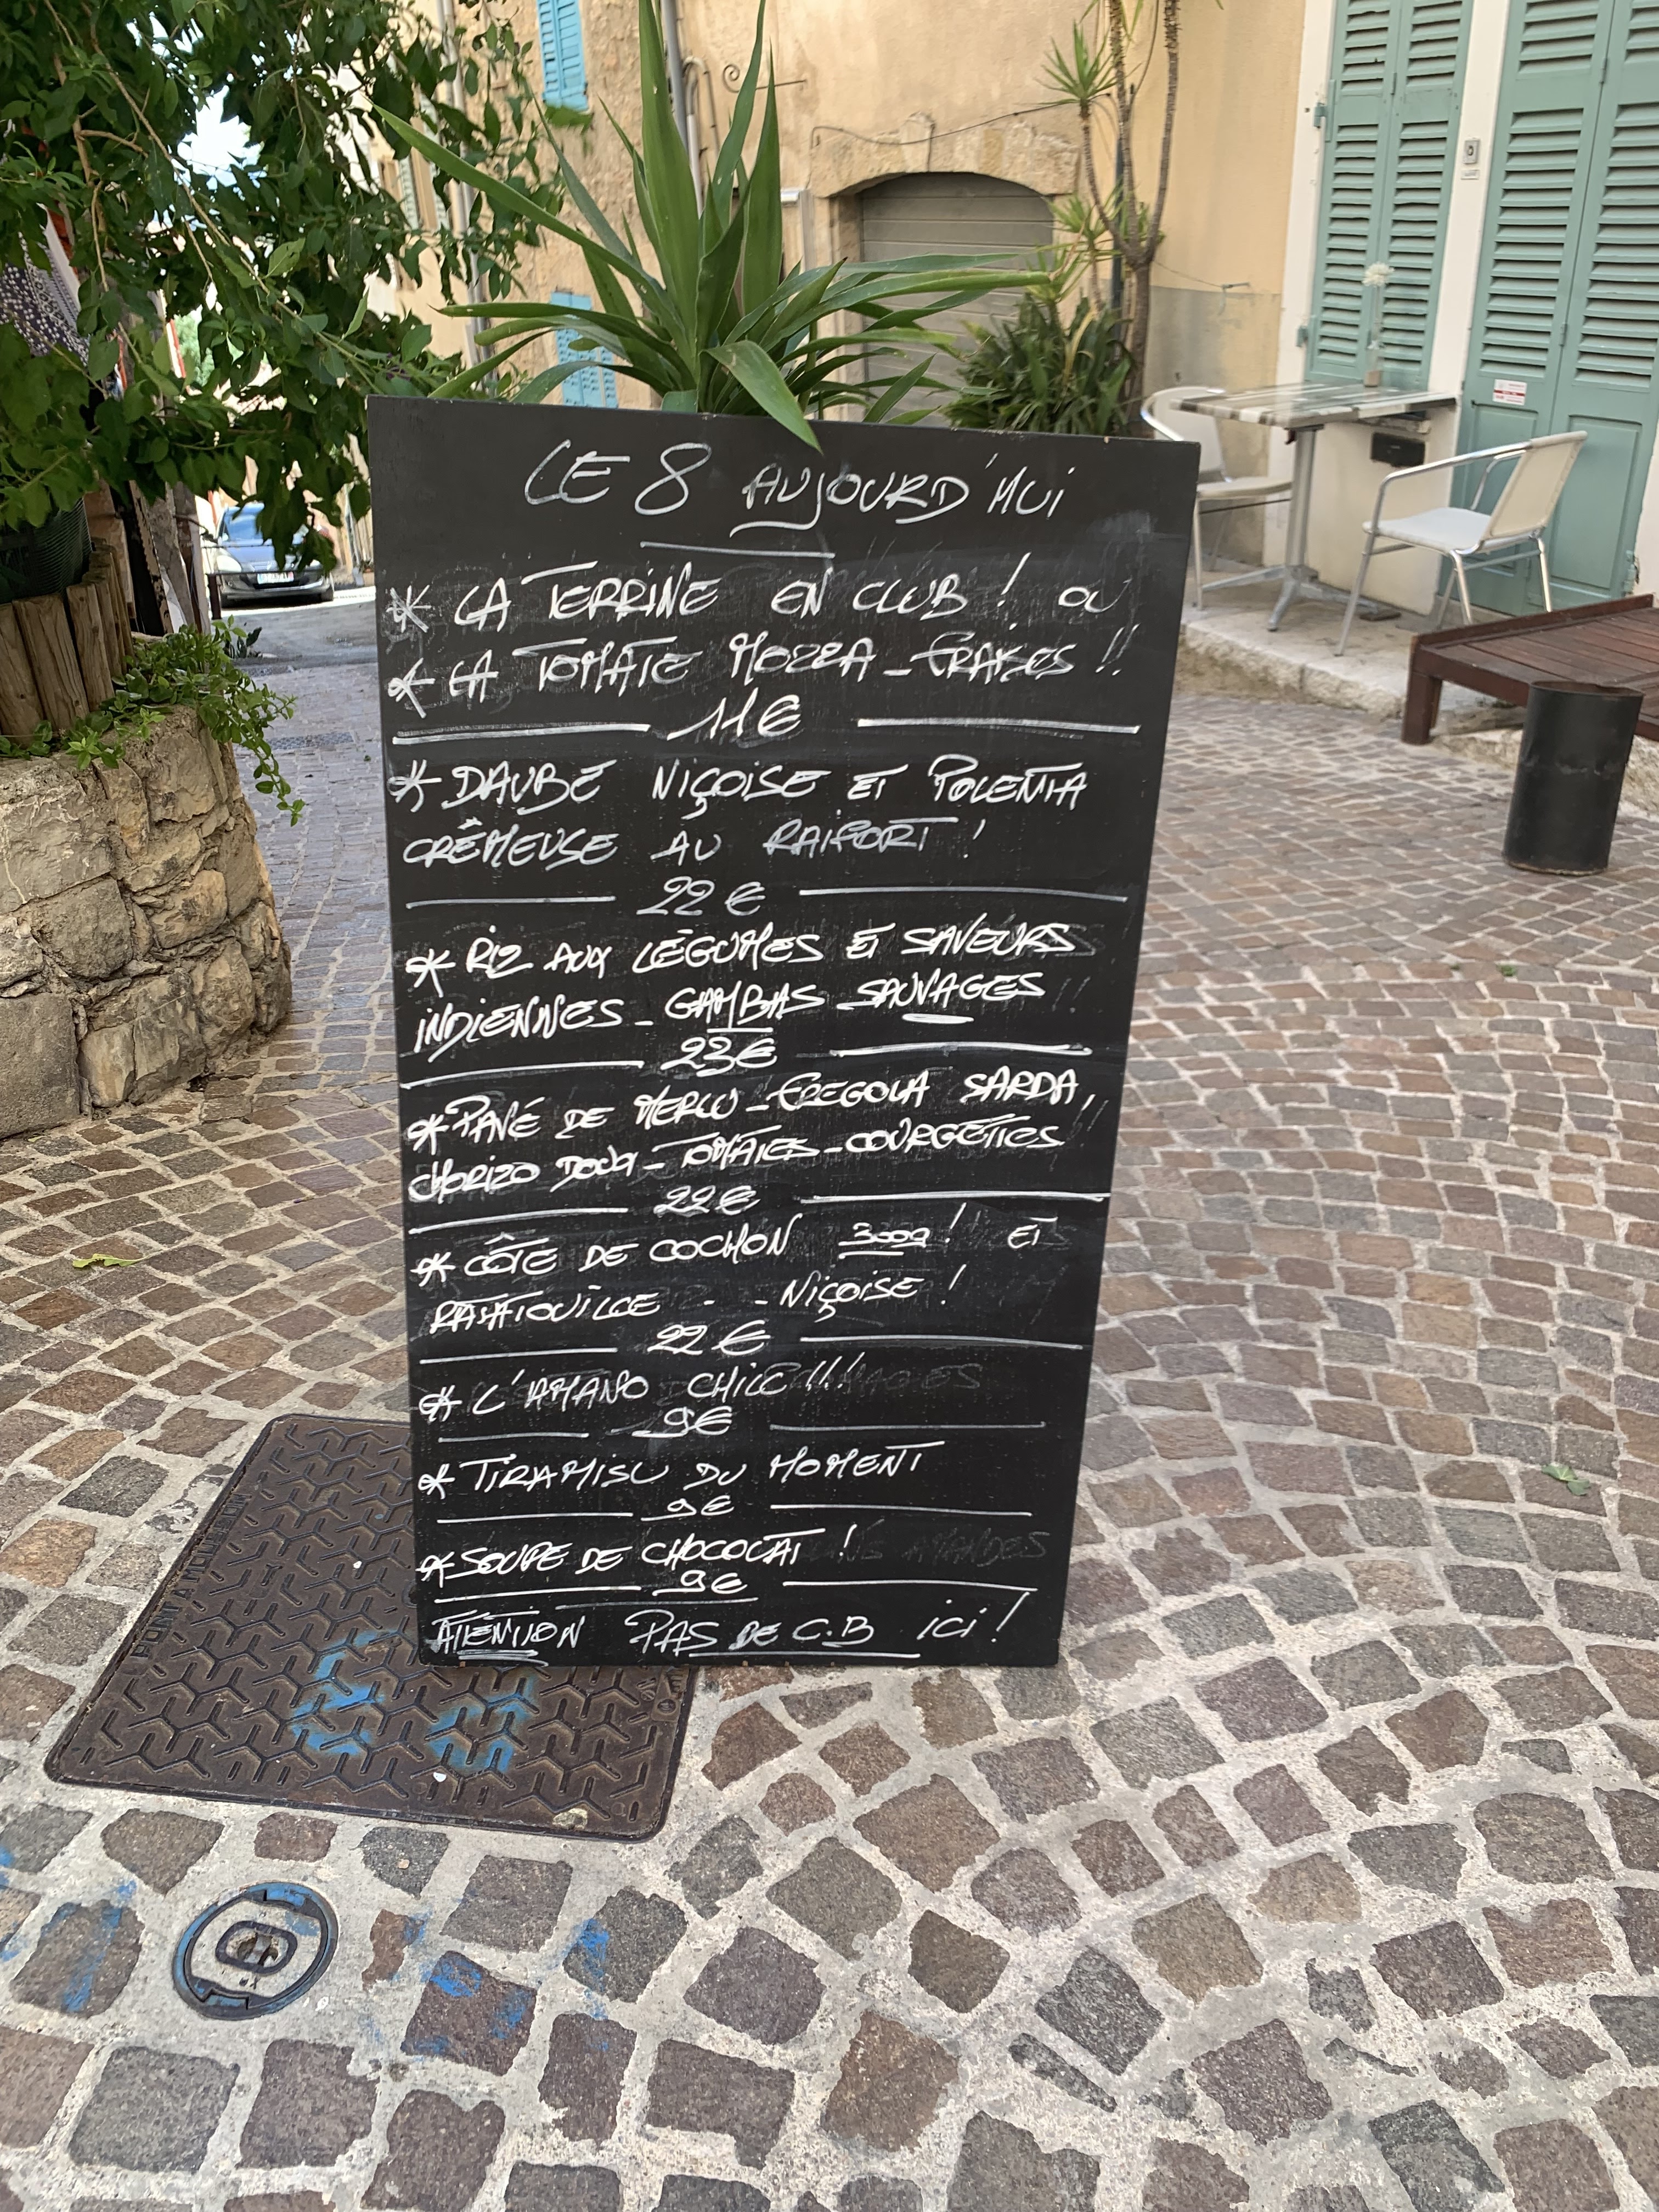 LE 8 AUJOURD'HUI
* LA TERRINE EN CLUB ! OU
* LA TOMATE MOZZA - FRAISES !!
11€
* DAUBE NIÇOISE ET POLENTA
CRÊMEUSE AU RAIFORT !
22 €
* RIZ AUX LÉGUMES ET SAVEURS
INDIENNES - GAMBAS SAUVAGES !!
23€
* PAVÉ DE MERLU - FREGOLA SARDA,
CHORIZO DOUX - TOMATES - COURGETTES
22€
* CÔTE DE COCHON 300g ! ET
RATATOUILLE - - NIÇOISE !
22 €
* L'AMANO CHILI !!!
9€
* TIRAMISU DU MOMENT
9€
* SOUPE DE CHOCOLAT !
9€
ATTENTION PAS DE C.B ICI !
PONT A MOUSSON